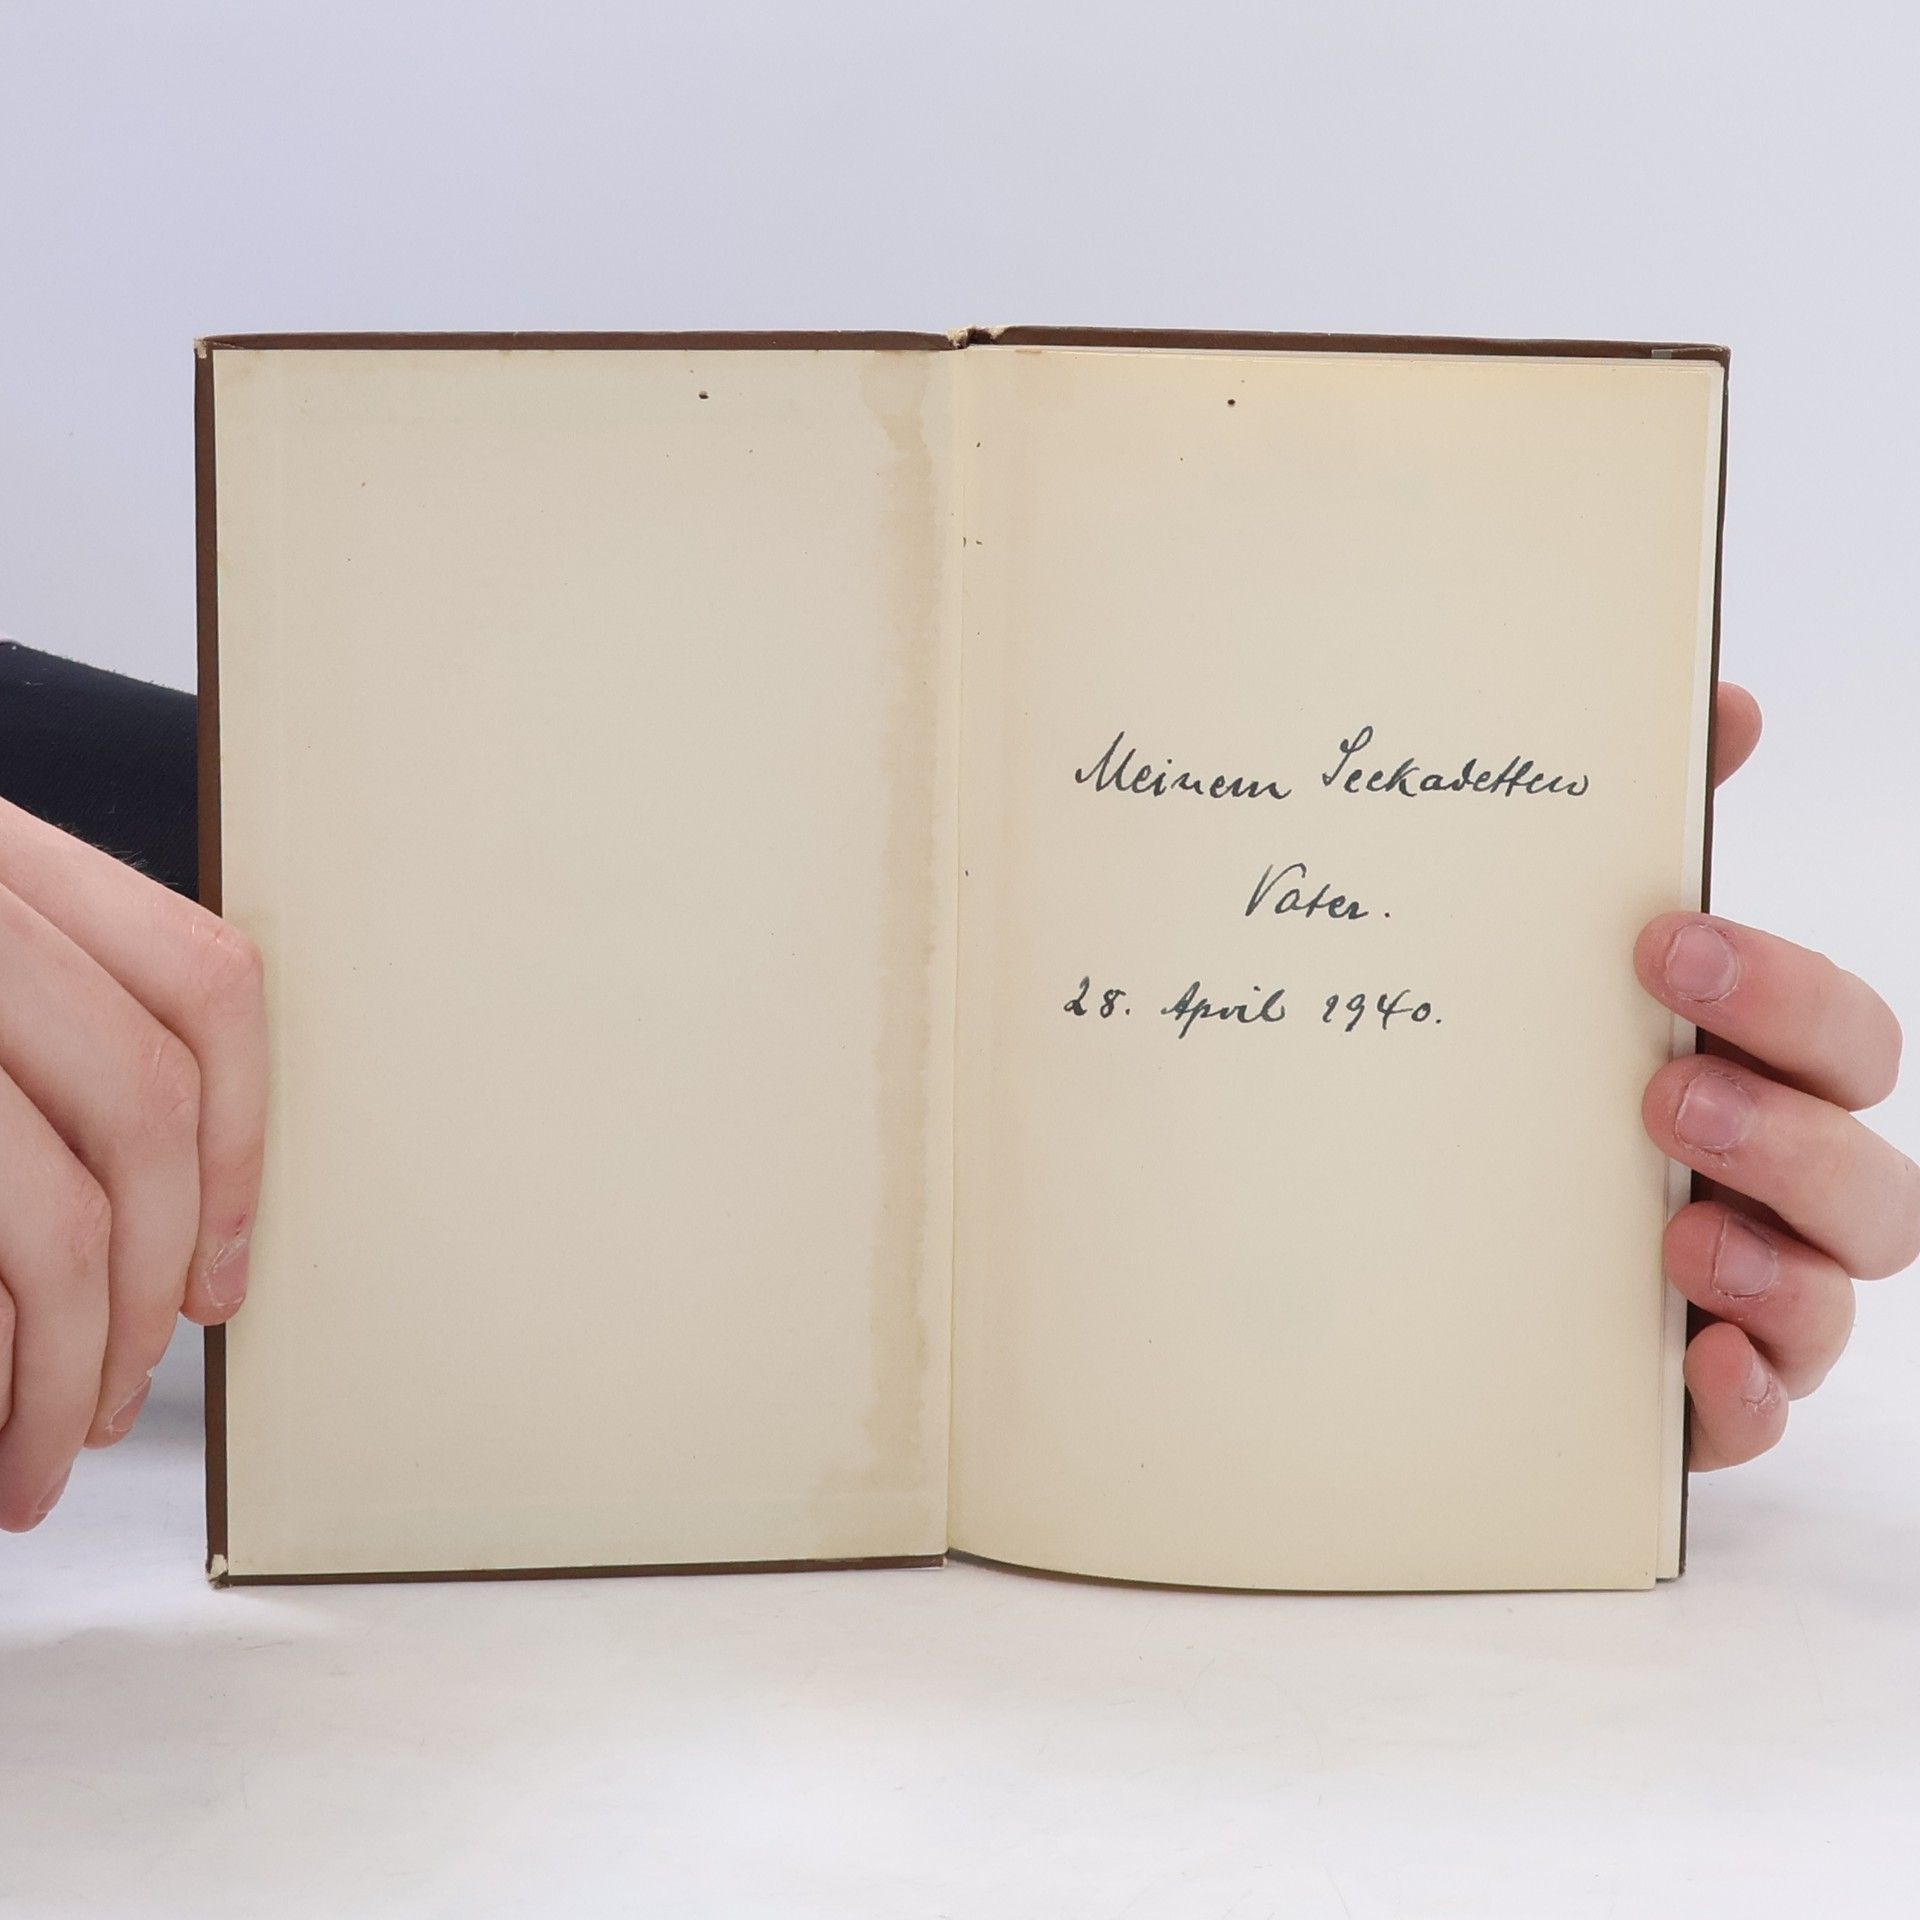 Meinem Seekadetten
Vater.
28. April 1940.